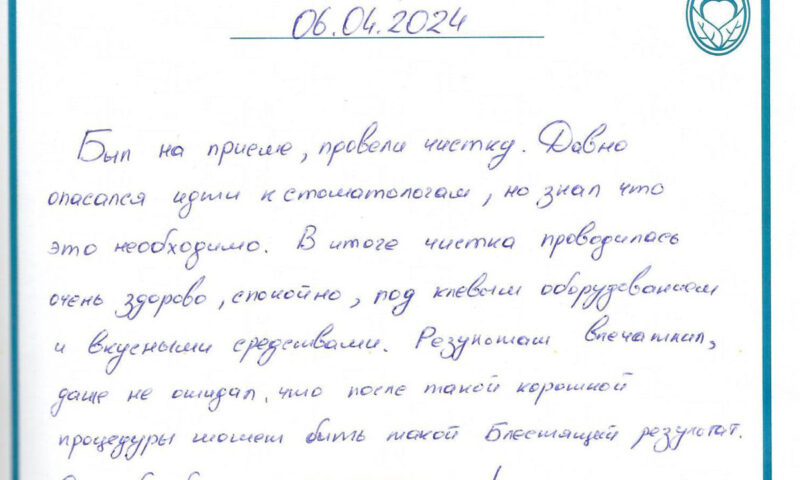 06.04.2024
Был на приеме, провели чистку. Давно
опасался идти к стоматологам, но знал что
это необходимо. В итоге чистка проводилась
очень здорово, спокойно, под клёвым оборудованием
и вкусными средствами. Результат впечатлил,
даже не ожидал, что после такой
процедуры может быть такой Блестящий результат.